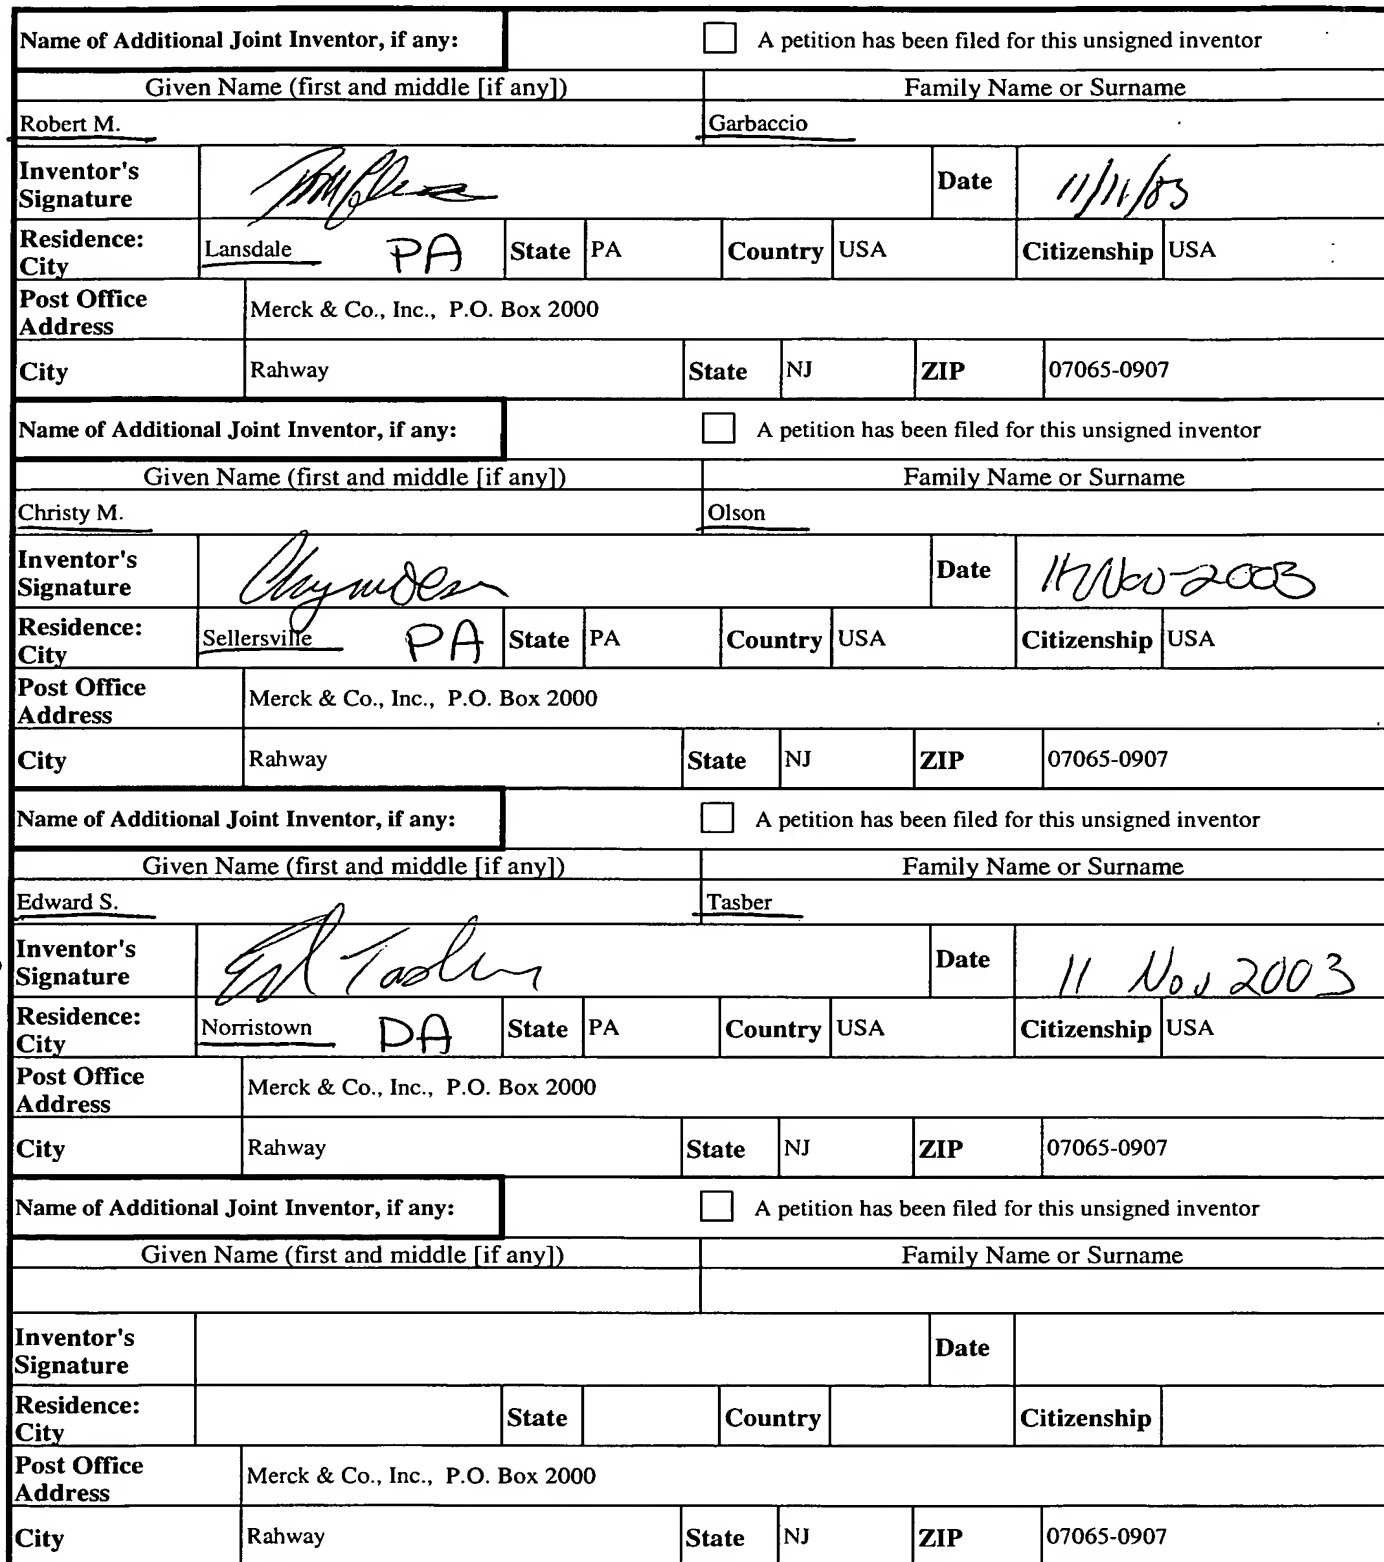 Name of Additional Joint Inventor, if any: A petition has been filed for this unsigned inventor
Given Name (first and middle [if any]) Family Name or Surname
Robert M. Garbaccio
Inventor's Signature Date 11/11/03
Residence: City Lansdale PA State PA Country USA Citizenship USA
Post Office Address Merck & Co., Inc., P.O. Box 2000
City Rahway State NJ ZIP 07065-0907
Name of Additional Joint Inventor, if any: A petition has been filed for this unsigned inventor
Given Name (first and middle [if any]) Family Name or Surname
Christy M. Olson
Inventor's Signature Date Nov-2003
Residence: City Sellersville PA State PA Country USA Citizenship USA
Post Office Address Merck & Co., Inc., P.O. Box 2000
City Rahway State NJ ZIP 07065-0907
Name of Additional Joint Inventor, if any: A petition has been filed for this unsigned inventor
Given Name (first and middle [if any]) Family Name or Surname
Edward S. Tasber
Inventor's Signature Ed Tasber Date 11 Nov 2003
Residence: City Norristown PA State PA Country USA Citizenship USA
Post Office Address Merck & Co., Inc., P.O. Box 2000
City Rahway State NJ ZIP 07065-0907
Name of Additional Joint Inventor, if any: A petition has been filed for this unsigned inventor
Given Name (first and middle [if any]) Family Name or Surname
Inventor's Signature Date
Residence: City State Country Citizenship
Post Office Address Merck & Co., Inc., P.O. Box 2000
City Rahway State NJ ZIP 07065-0907